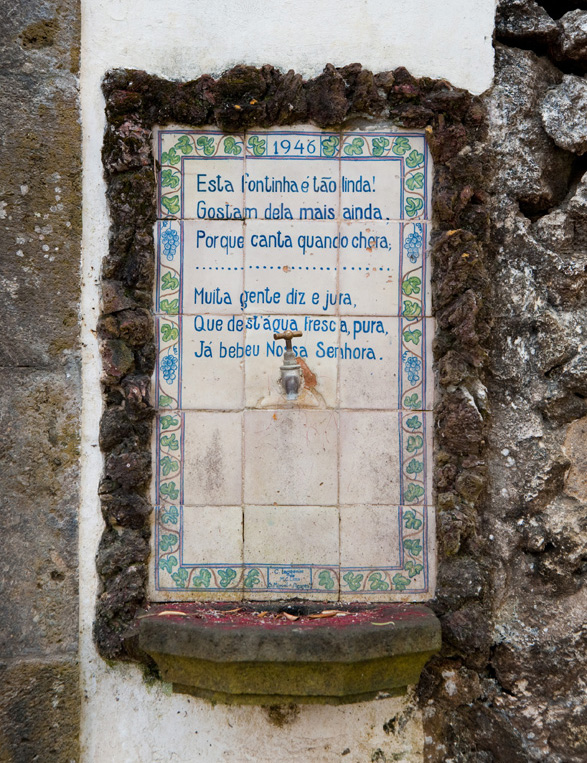 1946
Esta fontinha é tão linda!
Gostam dela mais ainda,
Porque canta quando chora;
Muita gente diz e jura,
Que dest'água fresca, pura,
Já bebeu Nossa Senhora.